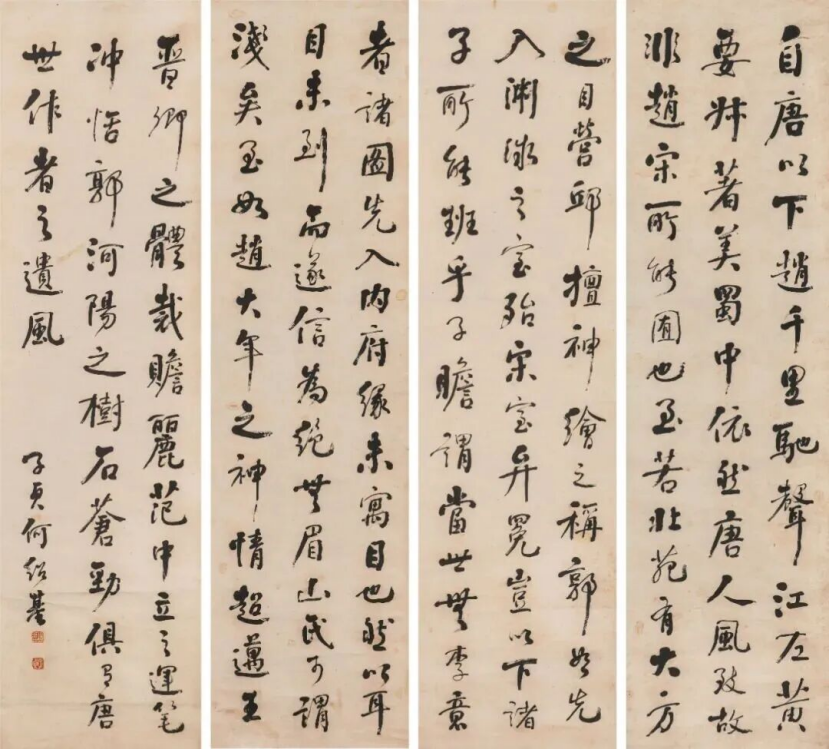 自唐以下趙千里馳聲江左黃
要叔著美蜀中依然唐人風致故
非趙宋所能囿也至若北苑有大方
之目營邱擅神繪之稱郭如先
入淵源之室殆宋室弁冕豈以下諸
子所能班乎子瞻謂當世無李意
者諸圖先入內府緣未寓目也然以耳
目未到而遂信為絕無眉山氏可謂
淺矣至如趙大年之神情超邁王
晉卿之體裁贍麗范中立之運筆
冲恬郭河陽之樹石蒼勁俱有唐
世作者之遺風
子貞何紹基